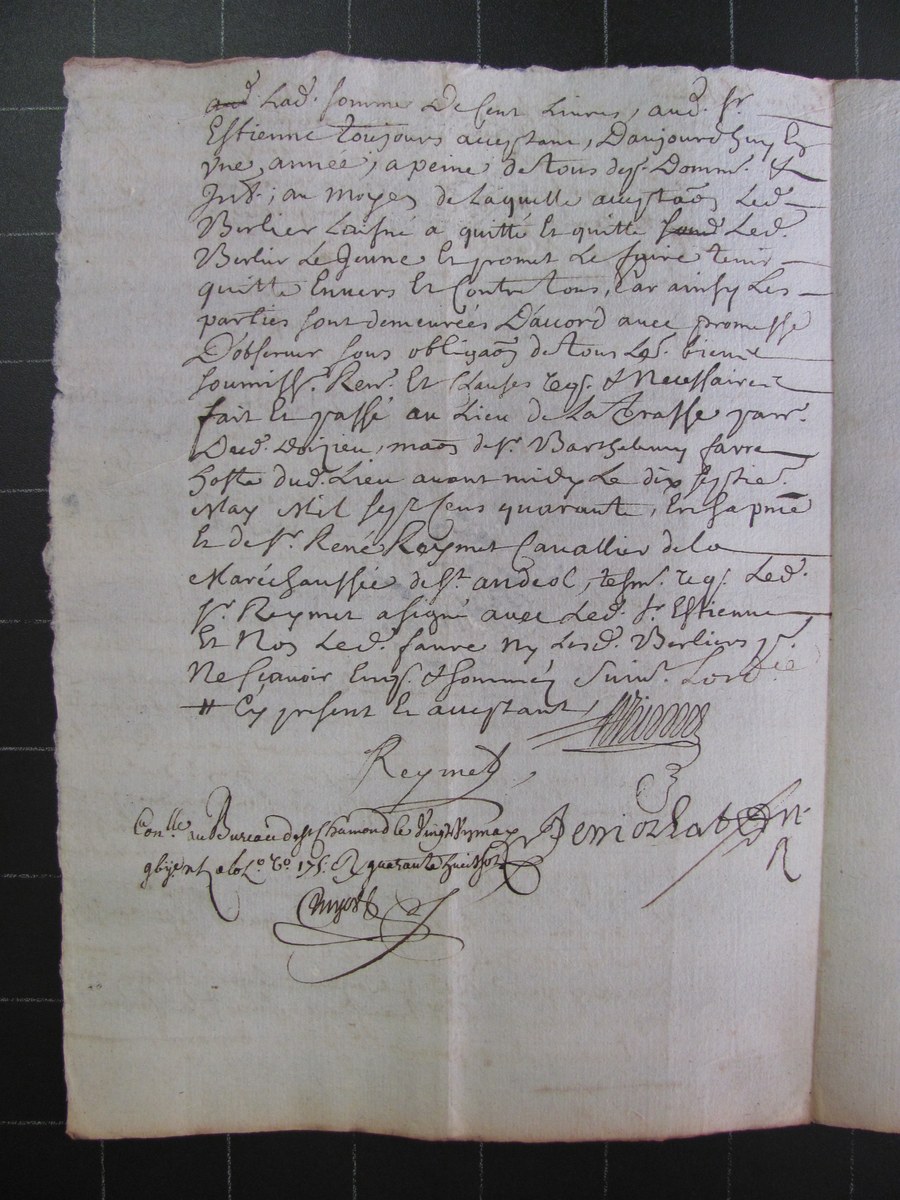 aud. Lad. somme De Cent Livres, aud. Sr.
Estienne toujours acceptant, Daujourdhuy En
Une année, a peine de tous dep. Domm. &
Int.; au moyen de Laquelle acceptaõn Led.
Berlier Laisné a quitté Et quitte Led.
Berlier Le Jeune Et promet Le faire tenir
quitte Envers Et Contre tous, Car ainsy Les
parties sont demeurées D'accord avec promesse
D'observer sous obligaõn de tous Les. biens
soumiss. Ren. Et Clauses req. & Necessaires
fait Et passé au Lieu de La Terasse parr.
Dud. Doizieu, maõn de Sr. Barthelemy favre
hoste dud. Lieu avant midy Le dix septie.
May Mil sept Cens quarante, En sa pnce
Et de Sr. René Reymet Cavallier de la
Maréchaussée de St. andeol, tesm. req. Led.
Sr. Reymet a signé avec Led. Sr. Estienne
Et Nos Led. favre ny Lesd. Berliers pr.
Ne sçavoir Enq. & sommés Suiv. Lord.
# Cy present Et acceptant
Reymet
Conlle au Bureau de St Chamond le vingt may
quarante huit sols